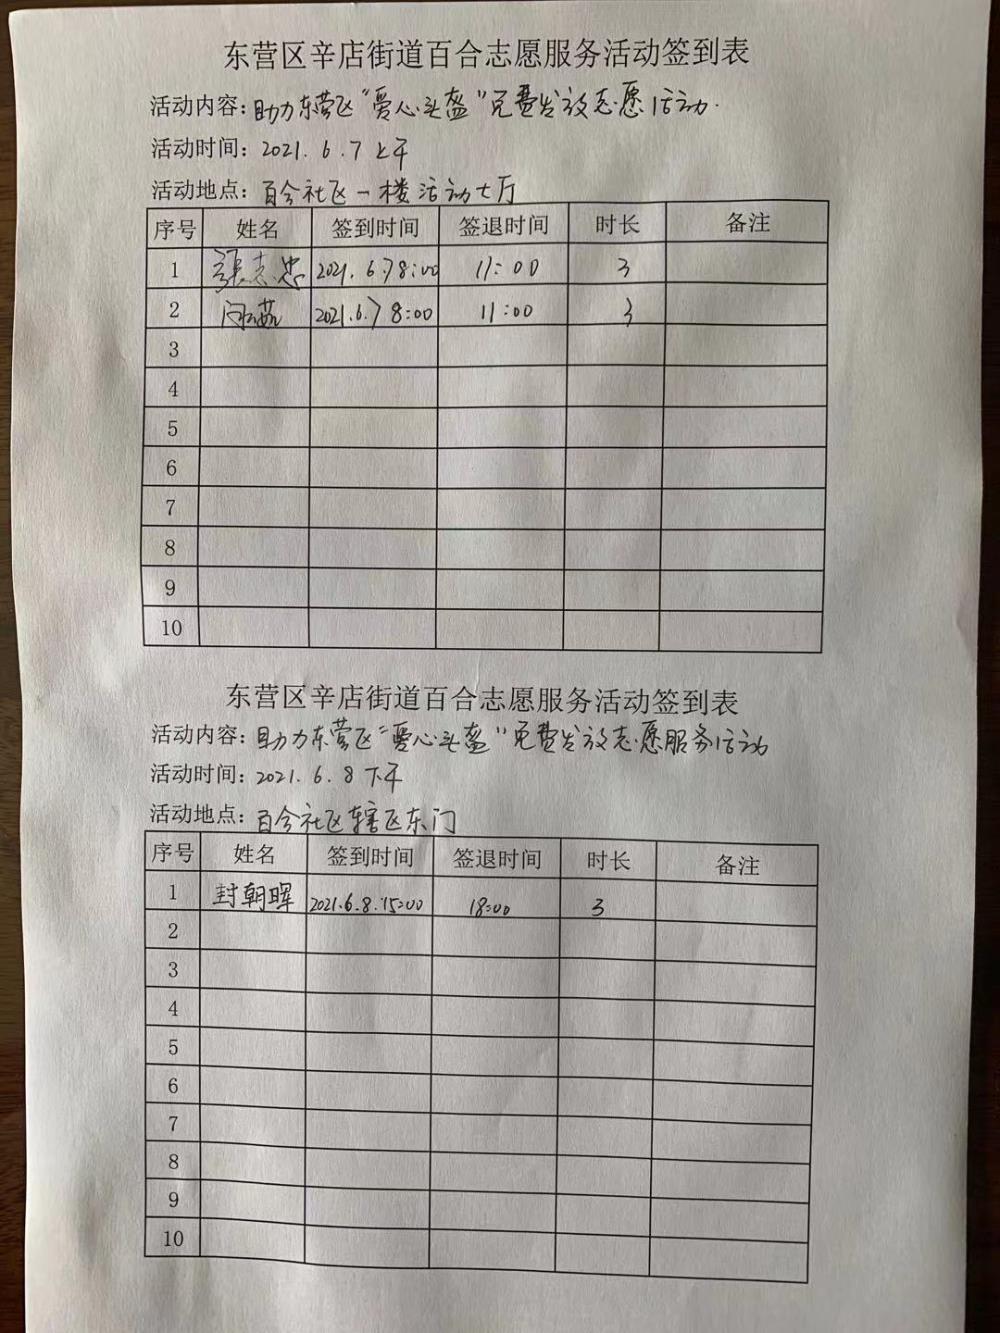 东营区辛店街道百合志愿服务活动签到表
活动内容：助力东营区“爱心头盔”免费发放志愿活动.
活动时间：2021.6.7上午
活动地点：百合社区一楼活动大厅
序号 姓名 签到时间 签退时间 时长 备注
1 张志忠 2021.6.7 8:00 11:00 3
2 2021.6.7 8:00 11:00 3
3
4
5
6
7
8
9
10
东营区辛店街道百合志愿服务活动签到表
活动内容：助力东营区“爱心头盔”免费发放志愿服务活动
活动时间：2021.6.8下午
活动地点：百合社区辖区东门
序号 姓名 签到时间 签退时间 时长 备注
1 封朝晖 2021.6.8.15:00 18:00 3
2
3
4
5
6
7
8
9
10